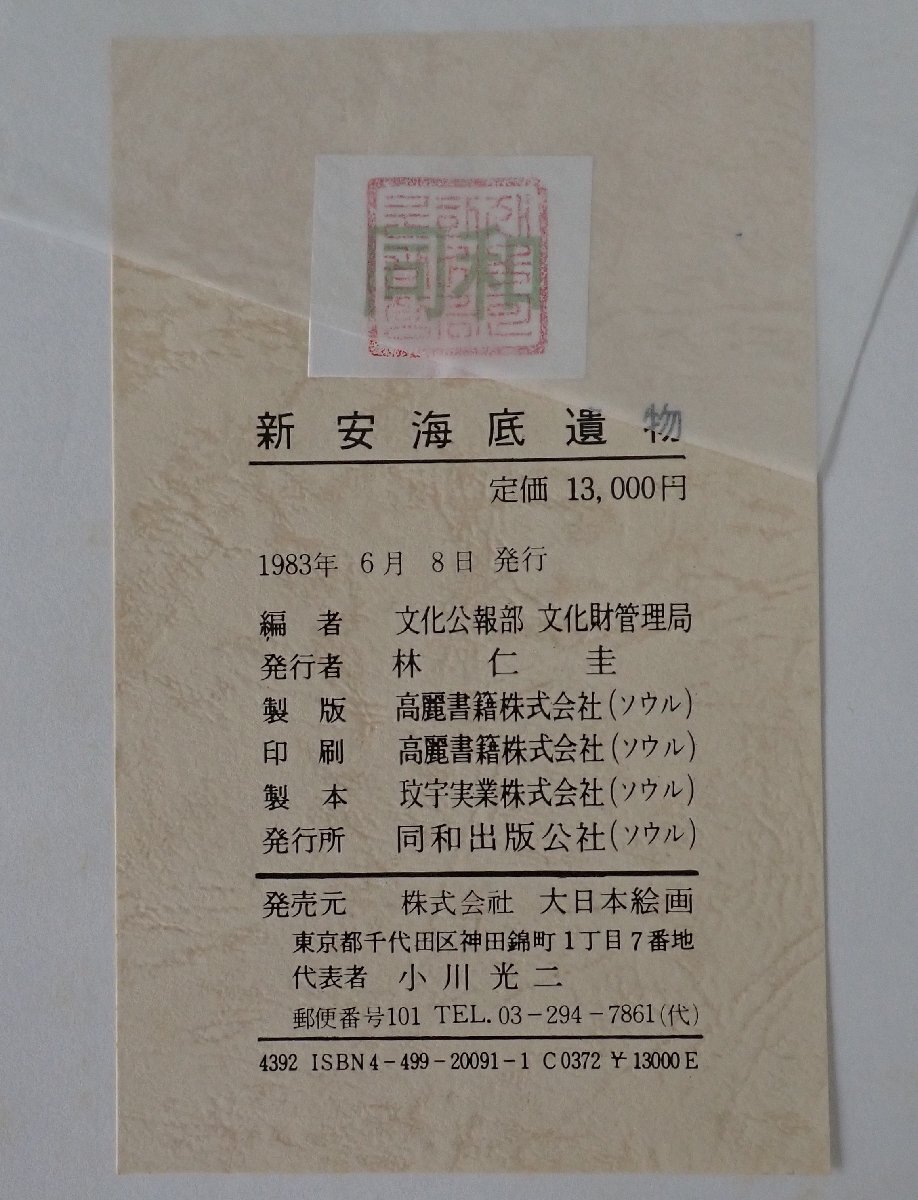 同和
新安海底遺物
定価 13,000円
1983年 6月 8日 発行
編者 文化公報部 文化財管理局
発行者 林仁圭
製版 高麗書籍株式会社(ソウル)
印刷 高麗書籍株式会社(ソウル)
製本 玟宇実業株式会社(ソウル)
発行所 同和出版公社(ソウル)
発売元 株式会社 大日本絵画
東京都千代田区神田錦町1丁目7番地
代表者 小川光二
郵便番号101 TEL. 03-294-7861(代)
4392 ISBN4-499-20091-1 C0372 ¥13000E